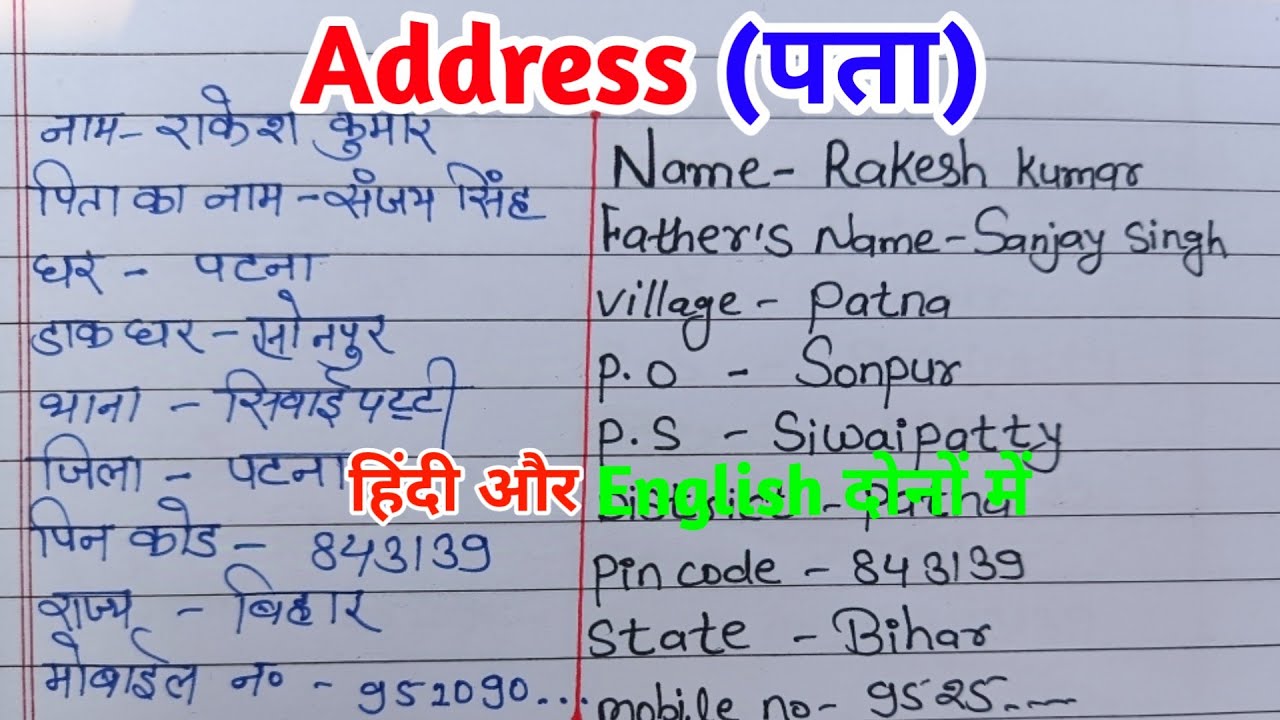 Address (पता)
नाम- राकेश कुमार
पिता का नाम - संजय सिंह
घर - पटना
डाक घर - सोनपुर
थाना - सिवाईपट्टी
जिला - पटना
पिन कोड - 843139
राज्य - बिहार
मोबाईल न० - 952090....
Name- Rakesh Kumar
Father's Name- Sanjay Singh
Village - Patna
P.O - Sonpur
P.S - Siwaipatty
District - Patna
Pin code - 843139
State - Bihar
mobile no- 9525....
हिंदी और English दोनों में